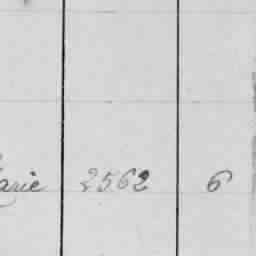 arie 2562 6